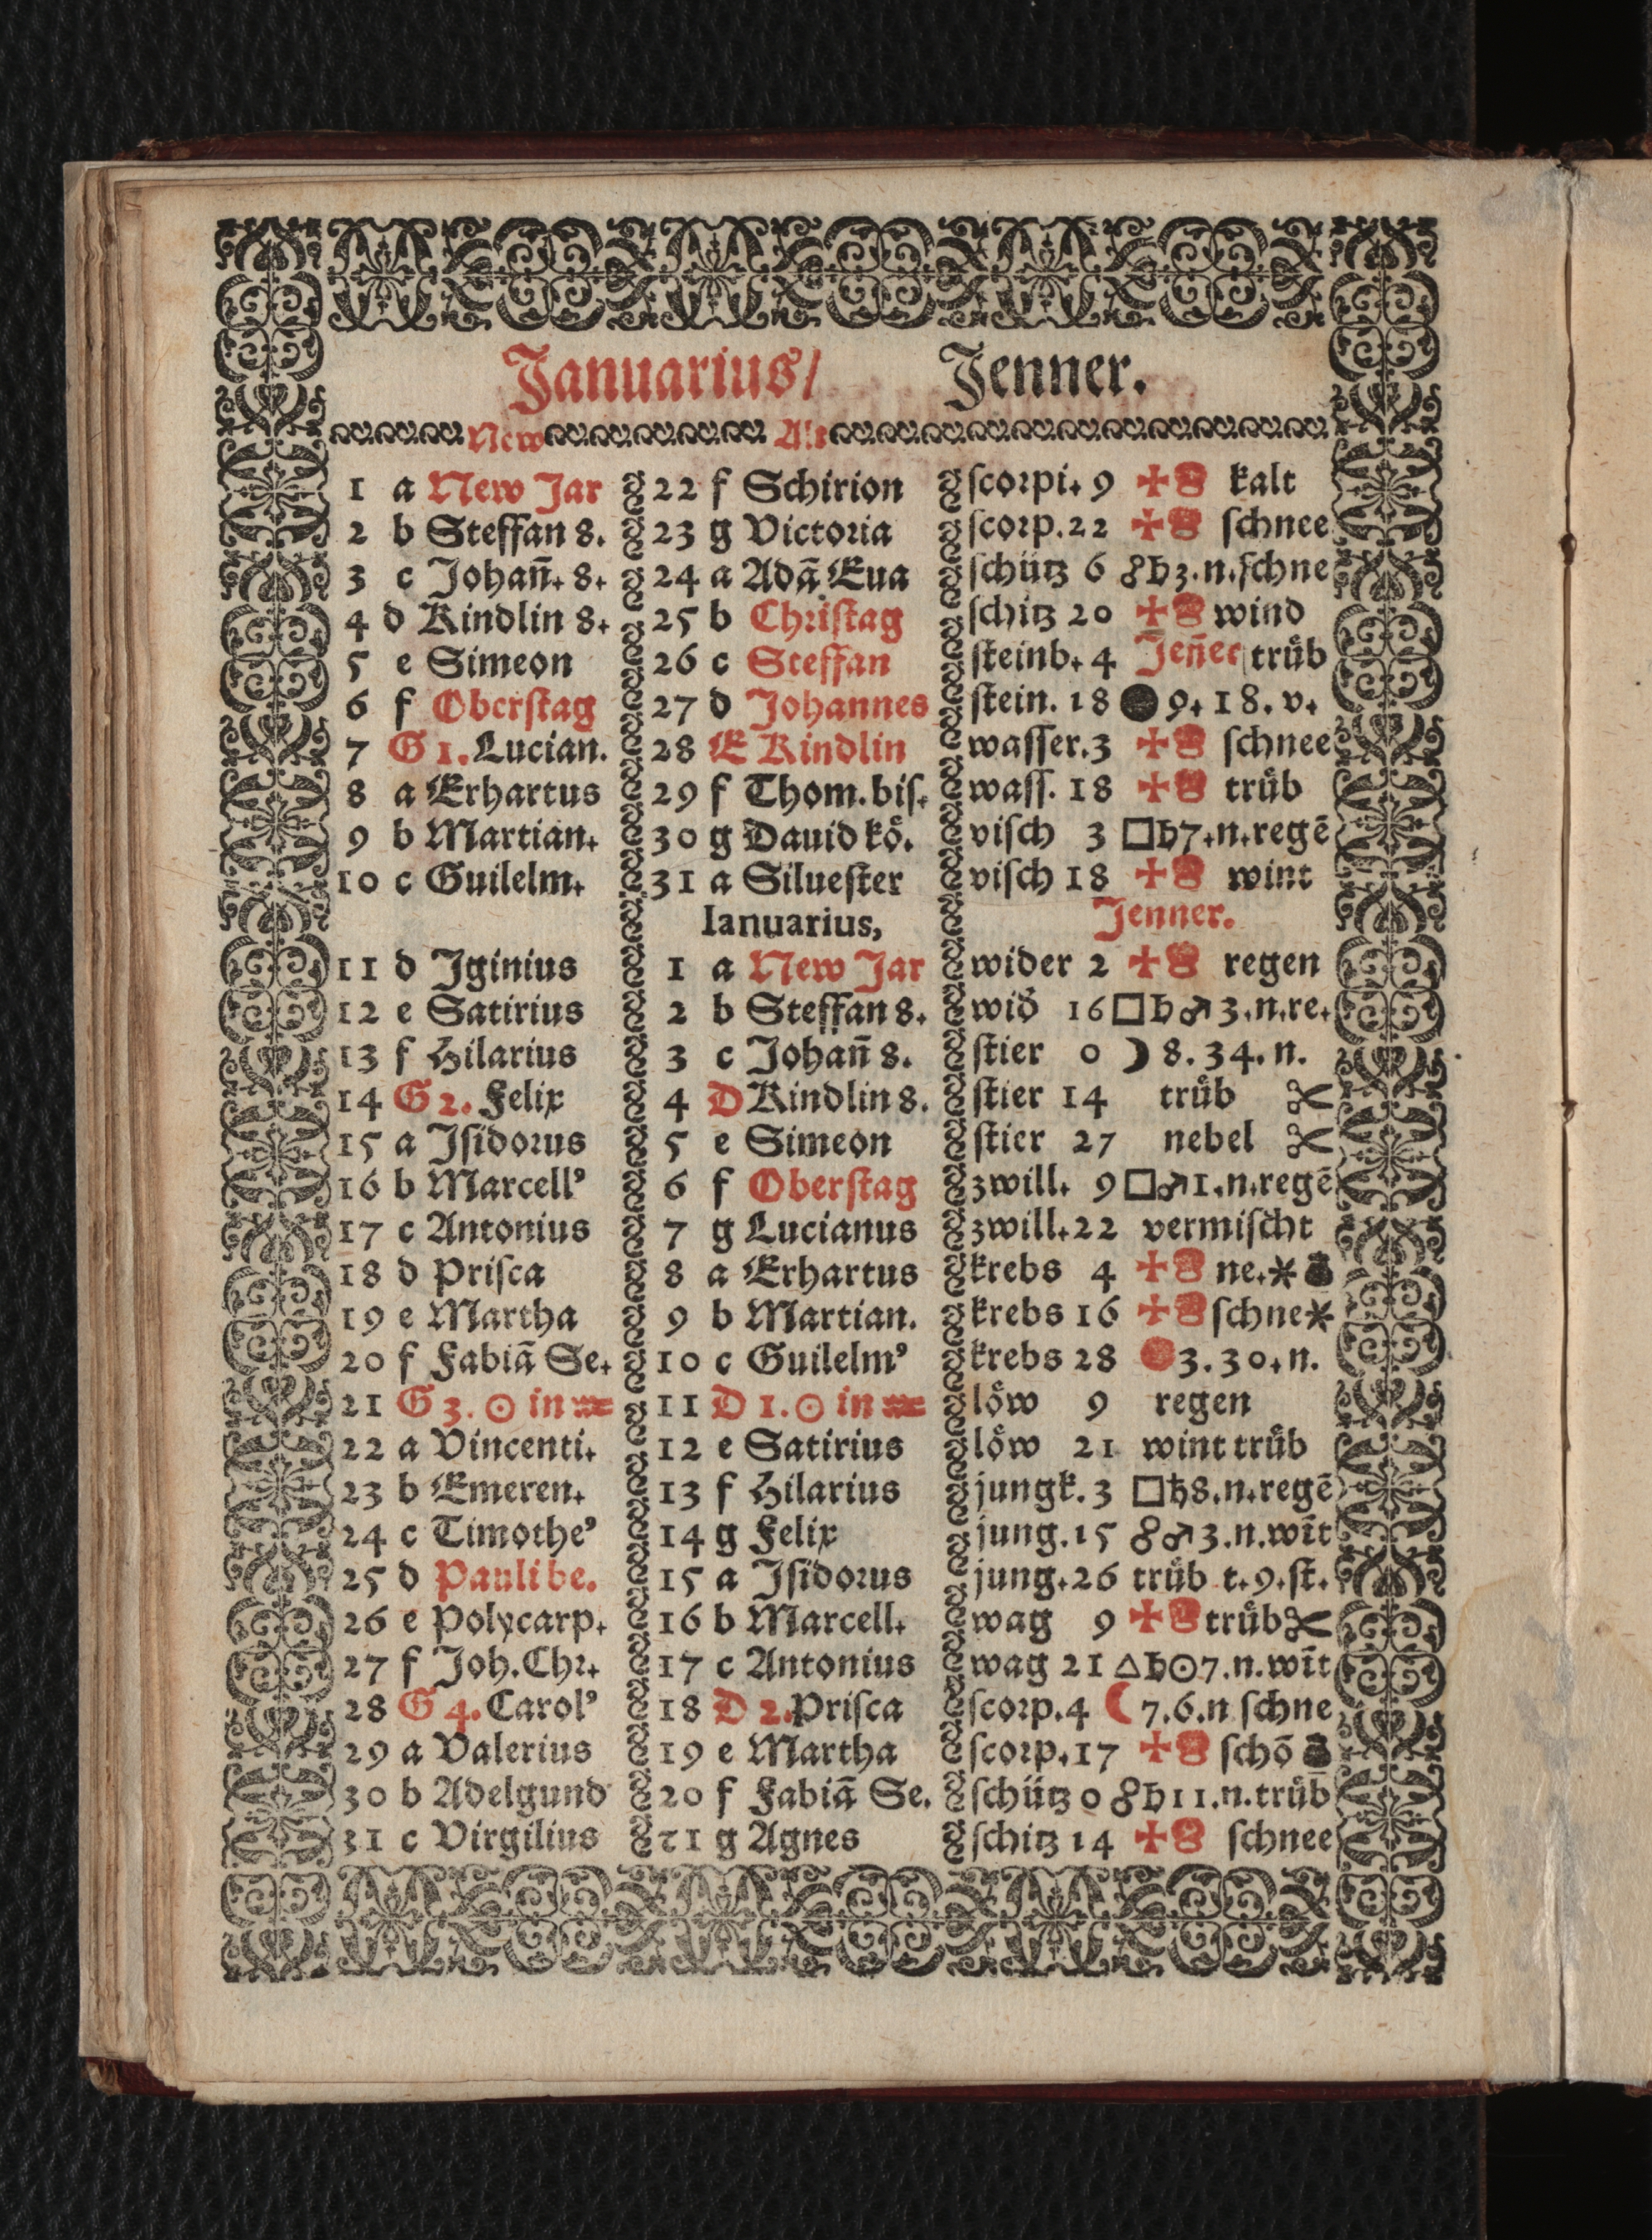 Januarius/ Jenner.
New Alt
1 a New Jar 22 f Schirion scorpi. 9 ✠ kalt
2 b Steffan 8. 23 g Victoria scorp. 22 ✠ schnee
3 c Johan̄. 8. 24 a Adā Eua schütz 6 ☍♄3.n.schne
4 d Kindlin 8. 25 b Christag schitz 20 ✠ wind
5 e Simeon 26 c Steffan steinb. 4 Jen̄er trüb
6 f Oberstag 27 d Johannes stein. 18 ● 9. 18. v.
7 G 1. Lucian. 28 E Kindlin wasser. 3 ✠ schnee
8 a Erhartus 29 f Thom. bis. wass. 18 ✠ trüb
9 b Martian. 30 g Dauid kö. visch 3 □♄7.n.regē
10 c Guilelm. 31 a Siluester visch 18 ✠ wint
Ianuarius, Jenner.
11 d Iginius 1 a New Jar wider 2 ✠ regen
12 e Satirius 2 b Steffan 8. wid 16 □♄♂3.n.re.
13 f Hilarius 3 c Johan̄ 8. stier 0 ☽ 8. 34. n.
14 G 2. Felix 4 D Kindlin 8. stier 14 trüb ✂
15 a Isidorus 5 e Simeon stier 27 nebel ✂
16 b Marcell' 6 f Oberstag zwill. 9 □♂1.n.regē
17 c Antonius 7 g Lucianus zwill. 22 vermischt
18 d Prisca 8 a Erhartus krebs 4 ✠ ne.*
19 e Martha 9 b Martian. krebs 16 ✠ schne*
20 f Fabiā Se. 10 c Guilelm' krebs 28 ● 3. 30. n.
21 G 3. ☉ in ♒ 11 D 1. ☉ in ♒ löw 9 regen
22 a Vincenti. 12 e Satirius löw 21 wint trüb
23 b Emeren. 13 f Hilarius jungk. 3 □♄8.n.regē
24 c Timothe' 14 g Felix jung. 15 ☍♂3.n.wīt
25 d Pauli be. 15 a Isidorus jung. 26 trüb t. 9. st.
26 e Polycarp. 16 b Marcell. wag 9 ✠ trüb ✂
27 f Joh. Chr. 17 c Antonius wag 21 △♄☉7.n.wīt
28 G 4. Carol' 18 D 2. Prisca scorp. 4 ☾ 7.6.n schne
29 a Valerius 19 e Martha scorp. 17 ✠ schō
30 b Adelgund 20 f Fabiā Se. schütz 0 ☍♄11.n.trüb
31 c Virgilius 21 g Agnes schitz 14 ✠ schnee